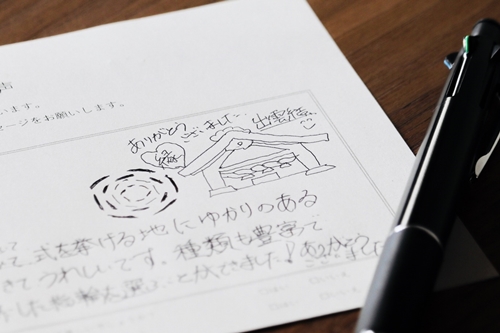 います。
セージをお願いします。
ありがとう
ございました
出雲
て式を挙げる地にゆかりのある
きてうれしいです。種類も豊富で
指輪を選ぶことができました！ありがとう